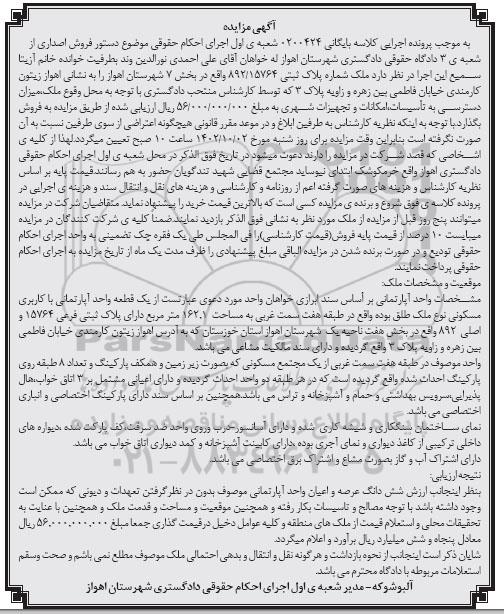 آگهی مزایده
به موجب پرونده اجرایی کلاسه بایگانی ۰۲۰۰۴۲۴ شعبه ی اول اجرای احکام حقوقی موضوع دستور فروش اصداری از
شعبه ی ۳ دادگاه حقوقی دادگستری شهرستان اهواز له خواهان آقای علی احمدی نورالدین وند بطرفیت خوانده خانم آزیتا
سمیع این اجرا در نظر دارد ملک شماره پلاک ثبتی ۸۹۲/۱۵۷۶۴ واقع در بخش ۷ شهرستان اهواز را به نشانی اهواز زیتون
کارمندی خیابان فاطمی بین زهره و زاویه پلاک ۳ که توسط کارشناس منتخب دادگستری با توجه به محل وقوع ملک،میزان
دسترسی به تأسیسات،امکانات و تجهیزات شهری به مبلغ ۵۶/۰۰۰/۰۰۰/۰۰۰ ریال ارزیابی شده از طریق مزایده به فروش
بگذارد.با توجه به اینکه نظریه کارشناس به طرفین ابلاغ و در موعد مقرر قانونی هیچگونه اعتراضی از سوی طرفین نسبت به آن
صورت نگرفته است بنابراین وقت مزایده برای روز شنبه مورخ ۱۴۰۲/۱۰/۰۲ ساعت ۱۰ صبح تعیین میگردد.لهذا از کلیه ی
اشخاصی که قصد شرکت در مزایده را دارند دعوت میشود در تاریخ فوق الذکر در محل شعبه ی اول اجرای احکام حقوقی
دادگستری اهواز واقع خرمکوشک ابتدای نیوساید مجتمع قضایی شهید تندگویان حضور به هم رسانند.قیمت پایه بر اساس
نظریه کارشناس و هزینه های صورت گرفته اعم از روزنامه و کارشناسی و هزینه های نقل و انتقال سند و هزینه ی اجرایی در
پرونده کلاسه ی فوق شروع و برنده ی مزایده کسی است که بالاترین قیمت خرید را پیشنهاد نماید. متقاضیان شرکت در مزایده
میتوانند پنج روز قبل از مزایده از ملک مورد نظر به نشانی فوق الذکر بازدید نمایند.ضمنا کلیه ی شرکت کنندگان در مزایده
میبایست ۱۰ درصد از قیمت پایه فروش(قیمت کارشناسی)را فی المجلس طی یک فقره چک تضمینی به واحد اجرای احکام
حقوقی تودیع و در صورت برنده شدن در مزایده الباقی مبلغ پیشنهادی را ظرف مدت یک ماه از تاریخ مزایده به اجرای احکام
حقوقی پرداخت نمایند.
موقعیت و مشخصات ملک:
مشخصات واحد آپارتمانی بر اساس سند ابرازی خواهان واحد مورد دعوی عبارتست از یک قطعه واحد آپارتمانی با کاربری
مسکونی نوع ملک طلق بوده واقع در طبقه هفت سمت غربی به مساحت ۱۶۲.۱ متر مربع دارای پلاک ثبتی فرعی ۱۵۷۶۴ و
اصلی ۸۹۲ واقع در بخش هفت ناحیه یک شهرستان اهواز استان خوزستان که به آدرس اهواز زیتون کارمندی خیابان فاطمی
بین زهره و زاویه پلاک ۳ واقع گردیده و دارای سند مالکیت مشاعی می باشد.
واحد موصوف در طبقه هفت سمت غربی از یک مجتمع مسکونی که بصورت زیر زمین و همکف پارکینگ و تعداد ۸ طبقه روی
پارکینگ احداث شده واقع گردیده است که در هر طبقه دو واحد احداث گردیده و دارای اعیانی مشتمل بر ۳ اتاق خواب،هال
پذیرایی،سرویس بهداشتی و حمام و آشپزخانه و تراس می باشد.همچنین بر اساس سند دارای پارکینگ اختصاصی و انباری
اختصاصی می باشد.
نمای ساختمان سنگکاری و شیشه کاری شده و دارای آسانسور-درب وروی واحد ضد سرقت.کف پارکت شده.دیواره های
داخلی ترکیبی از کاغذ دیواری و نمای آجری بوده .دارای کابینت آشپزخانه و کمد دیواری اتاق خواب می باشد.
دارای اشتراک آب و گاز بصورت مشاع و اشتراک برق اختصاصی می باشد.
نتیجه ارزیابی:
بنظر اینجانب ارزش شش دانگ عرصه و اعیان واحد آپارتمانی موصوف بدون در نظر گرفتن تعهدات و دیونی که ممکن است
وجود داشته باشد با توجه مصالح و تاسیسات بکار رفته و همچنین موقعیت و مساحت و قدمت ملک و همچنین با عنایت به
تحقیقات محلی و استعلام قیمت از ملک های منطقه و کلیه عوامل دخیل درقیمت گذاری جمعا مبلغ ۵۶.۰۰۰.۰۰۰.۰۰۰ ریال
معادل پنجاه و شش میلیارد ریال برآورد و اعلام میگردد.
شایان ذکر است اینجانب از نحوه بازداشت و هرگونه نقل و انتقال و بدهی احتمالی ملک موصوف مطلع نمی باشم و صحت وسقم
استعلامات مربوطه با دادگاه محترم می باشد.
آلبوشوکه - مدیر شعبه ی اول اجرای احکام حقوقی دادگستری شهرستان اهواز